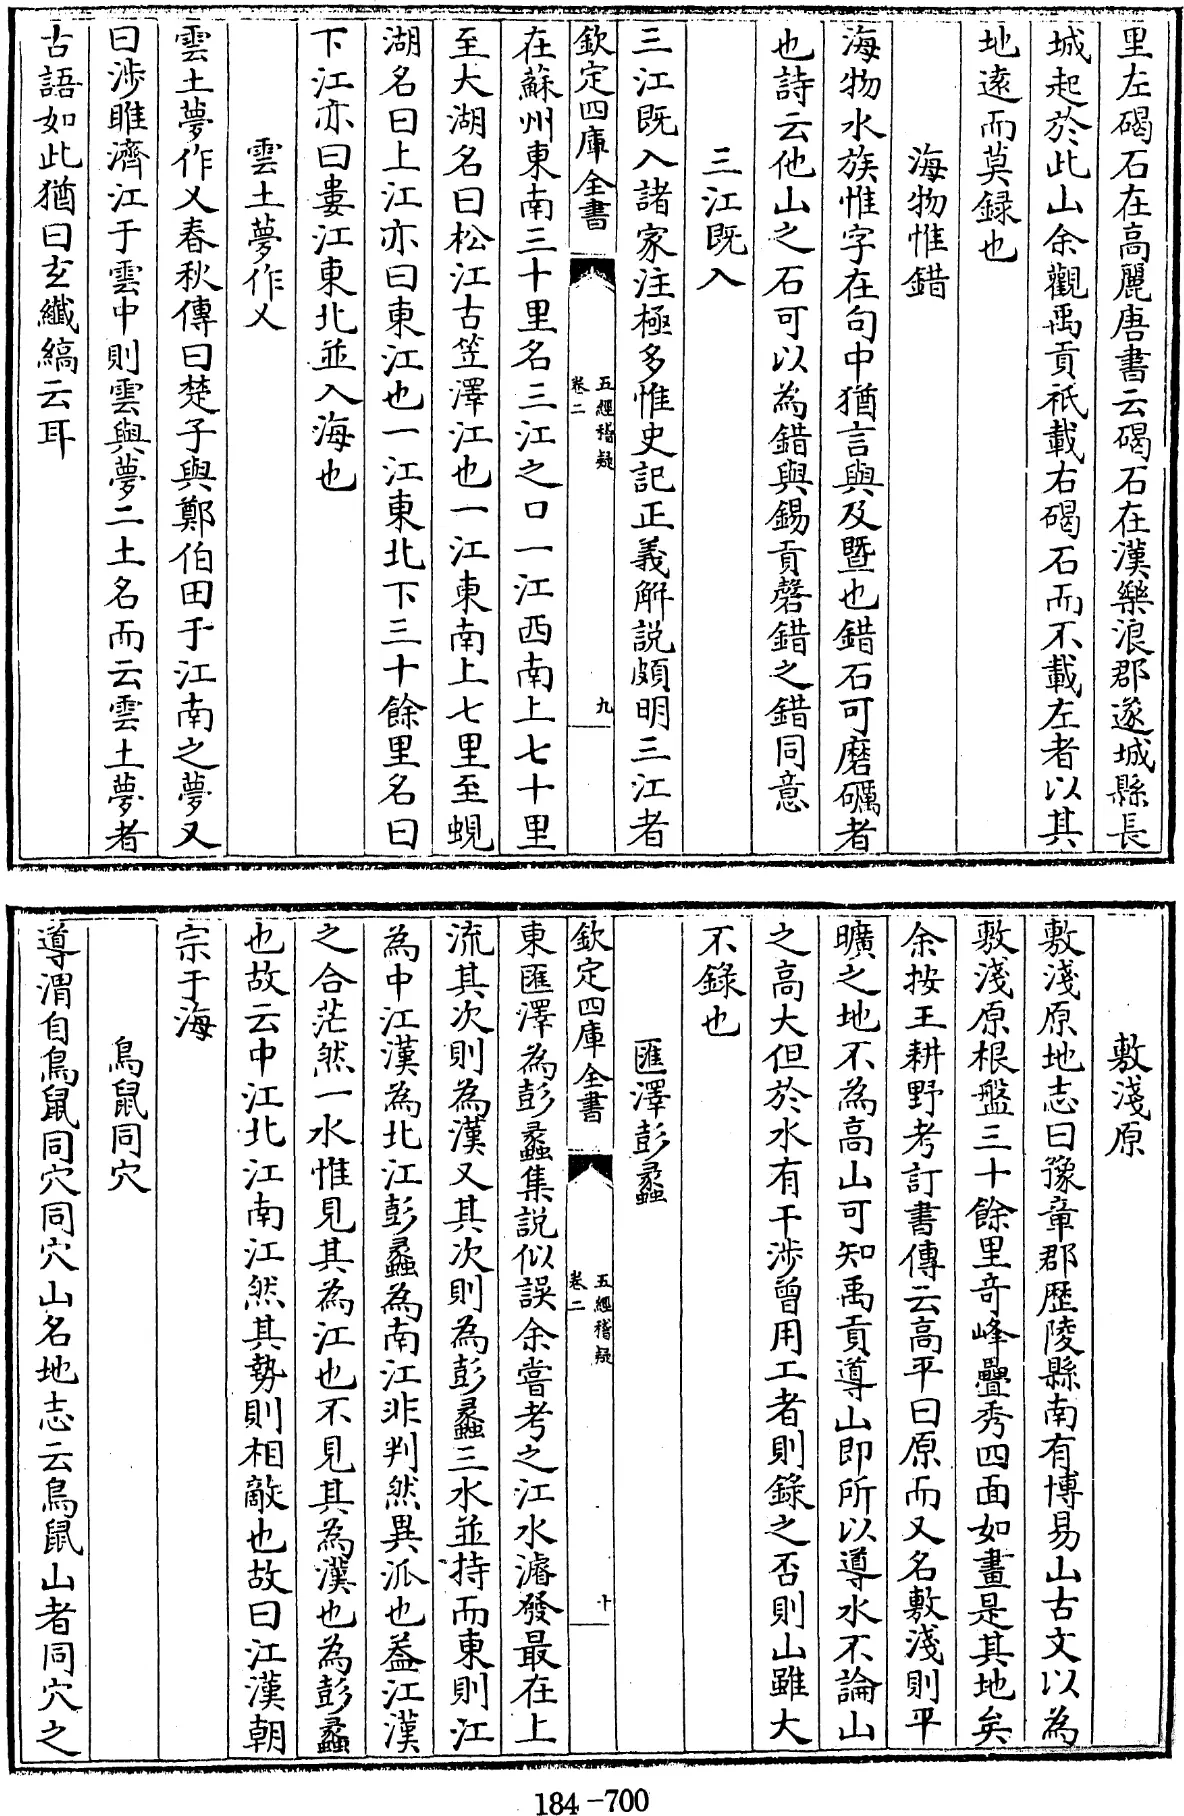 里左碣石在高麗唐書云碣石在漢樂浪郡遂城縣長
城起於此山余觀禹貢祇載右碣石而不載左者以其
地遠而莫録也
海物惟錯
海物水族惟字在句中猶言與及暨也錯石可磨礪者
也詩云他山之石可以為錯與錫貢磬錯之錯同意
三江既入
三江既入諸家注極多惟史記正義解説頗明三江者
欽定四庫全書
五經稽疑
卷二
九
在蘇州東南三十里名三江之口一江西南上七十里
至大湖名曰松江古笠澤江也一江東南上七里至蜆
湖名曰上江亦曰東江也一江東北下三十餘里名曰
下江亦曰婁江東北並入海也
雲土夢作乂
雲土夢作乂春秋傳曰楚子與鄭伯田于江南之夢又
曰涉睢濟江于雲中則雲與夢二土名而云雲土夢者
古語如此猶曰玄纖縞云耳
敷淺原
敷淺原地志曰豫章郡歴陵縣南有博易山古文以為
敷淺原根盤三十餘里竒峰疊秀四面如畫是其地矣
余按王耕野考訂書傳云高平曰原而又名敷淺則平
曠之地不為高山可知禹貢導山即所以導水不論山
之高大但於水有干涉曾用工者則錄之否則山雖大
不錄也
匯澤彭蠡
欽定四庫全書
五經稽疑
卷二
十
東匯澤為彭蠡集説似誤余嘗考之江水濬發最在上
流其次則為漢又其次則為彭蠡三水並持而東則江
為中江漢為北江彭蠡為南江非判然異派也葢江漢
之合茫然一水惟見其為江也不見其為漢也為彭蠡
也故云中江北江南江然其勢則相敵也故曰江漢朝
宗于海
鳥鼠同穴
導渭自鳥鼠同穴同穴山名地志云鳥鼠山者同穴之
184-700